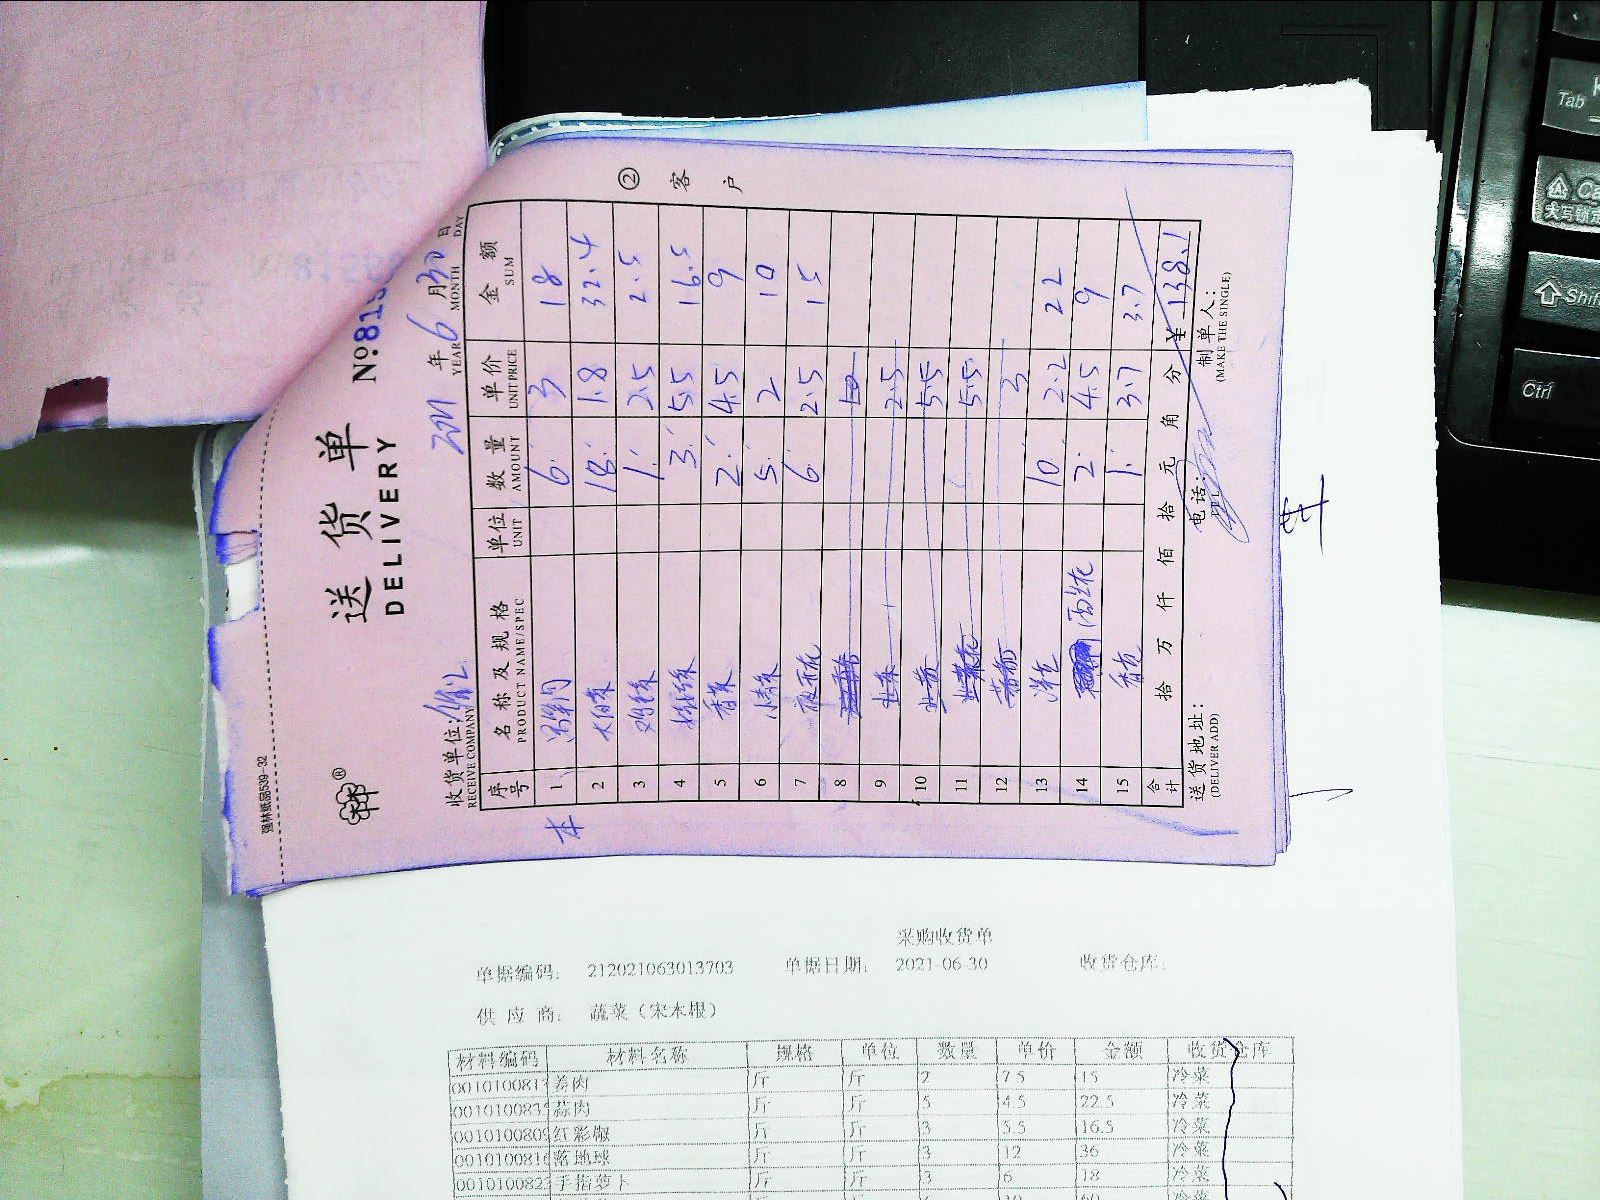 强林纸品539-32
送货单
DELIVERY
No.815
2021年6月30日
YEAR MONTH DAY
收货单位:
RECEIVE COMPANY
② 客户
序号 名称及规格 单位 数量 单价 金额
PRODUCT NAME/SPEC UNIT AMOUNT UNIT PRICE SUM
1 6 3 18
2 大白菜 18 1.8 32.4
3 1 2.5 2.5
4 3 5.5 16.5
5 香菜 2 4.5 9
6 小青菜 5 2 10
7 6 2.5 15
8
9 2.5
10 5.5
11 5.5
12 3
13 10 2.2 22
14 西兰花 2 4.5 9
15 1 3.7 3.7
合计 拾 万 仟 佰 拾 元 角 分 ¥ 138.1
送货地址: 电话: 制单人:
(DELIVER ADD) (MAKE THE SINGLE)
采购收货单
单据编码: 212021063013703 单据日期: 2021-06-30 收货仓库:
供应商: 蔬菜(宋木根)
材料编码 材料名称 规格 单位 数量 单价 金额 收货仓库
斤 斤 2 7.5 15 冷菜
蒜肉 斤 斤 5 4.5 22.5 冷菜
红彩椒 斤 斤 3 5.5 16.5 冷菜
落地球 斤 斤 3 12 36 冷菜
手指萝卜 斤 斤 3 6 18 冷菜
Tab
大写锁定
Shift
Ctrl